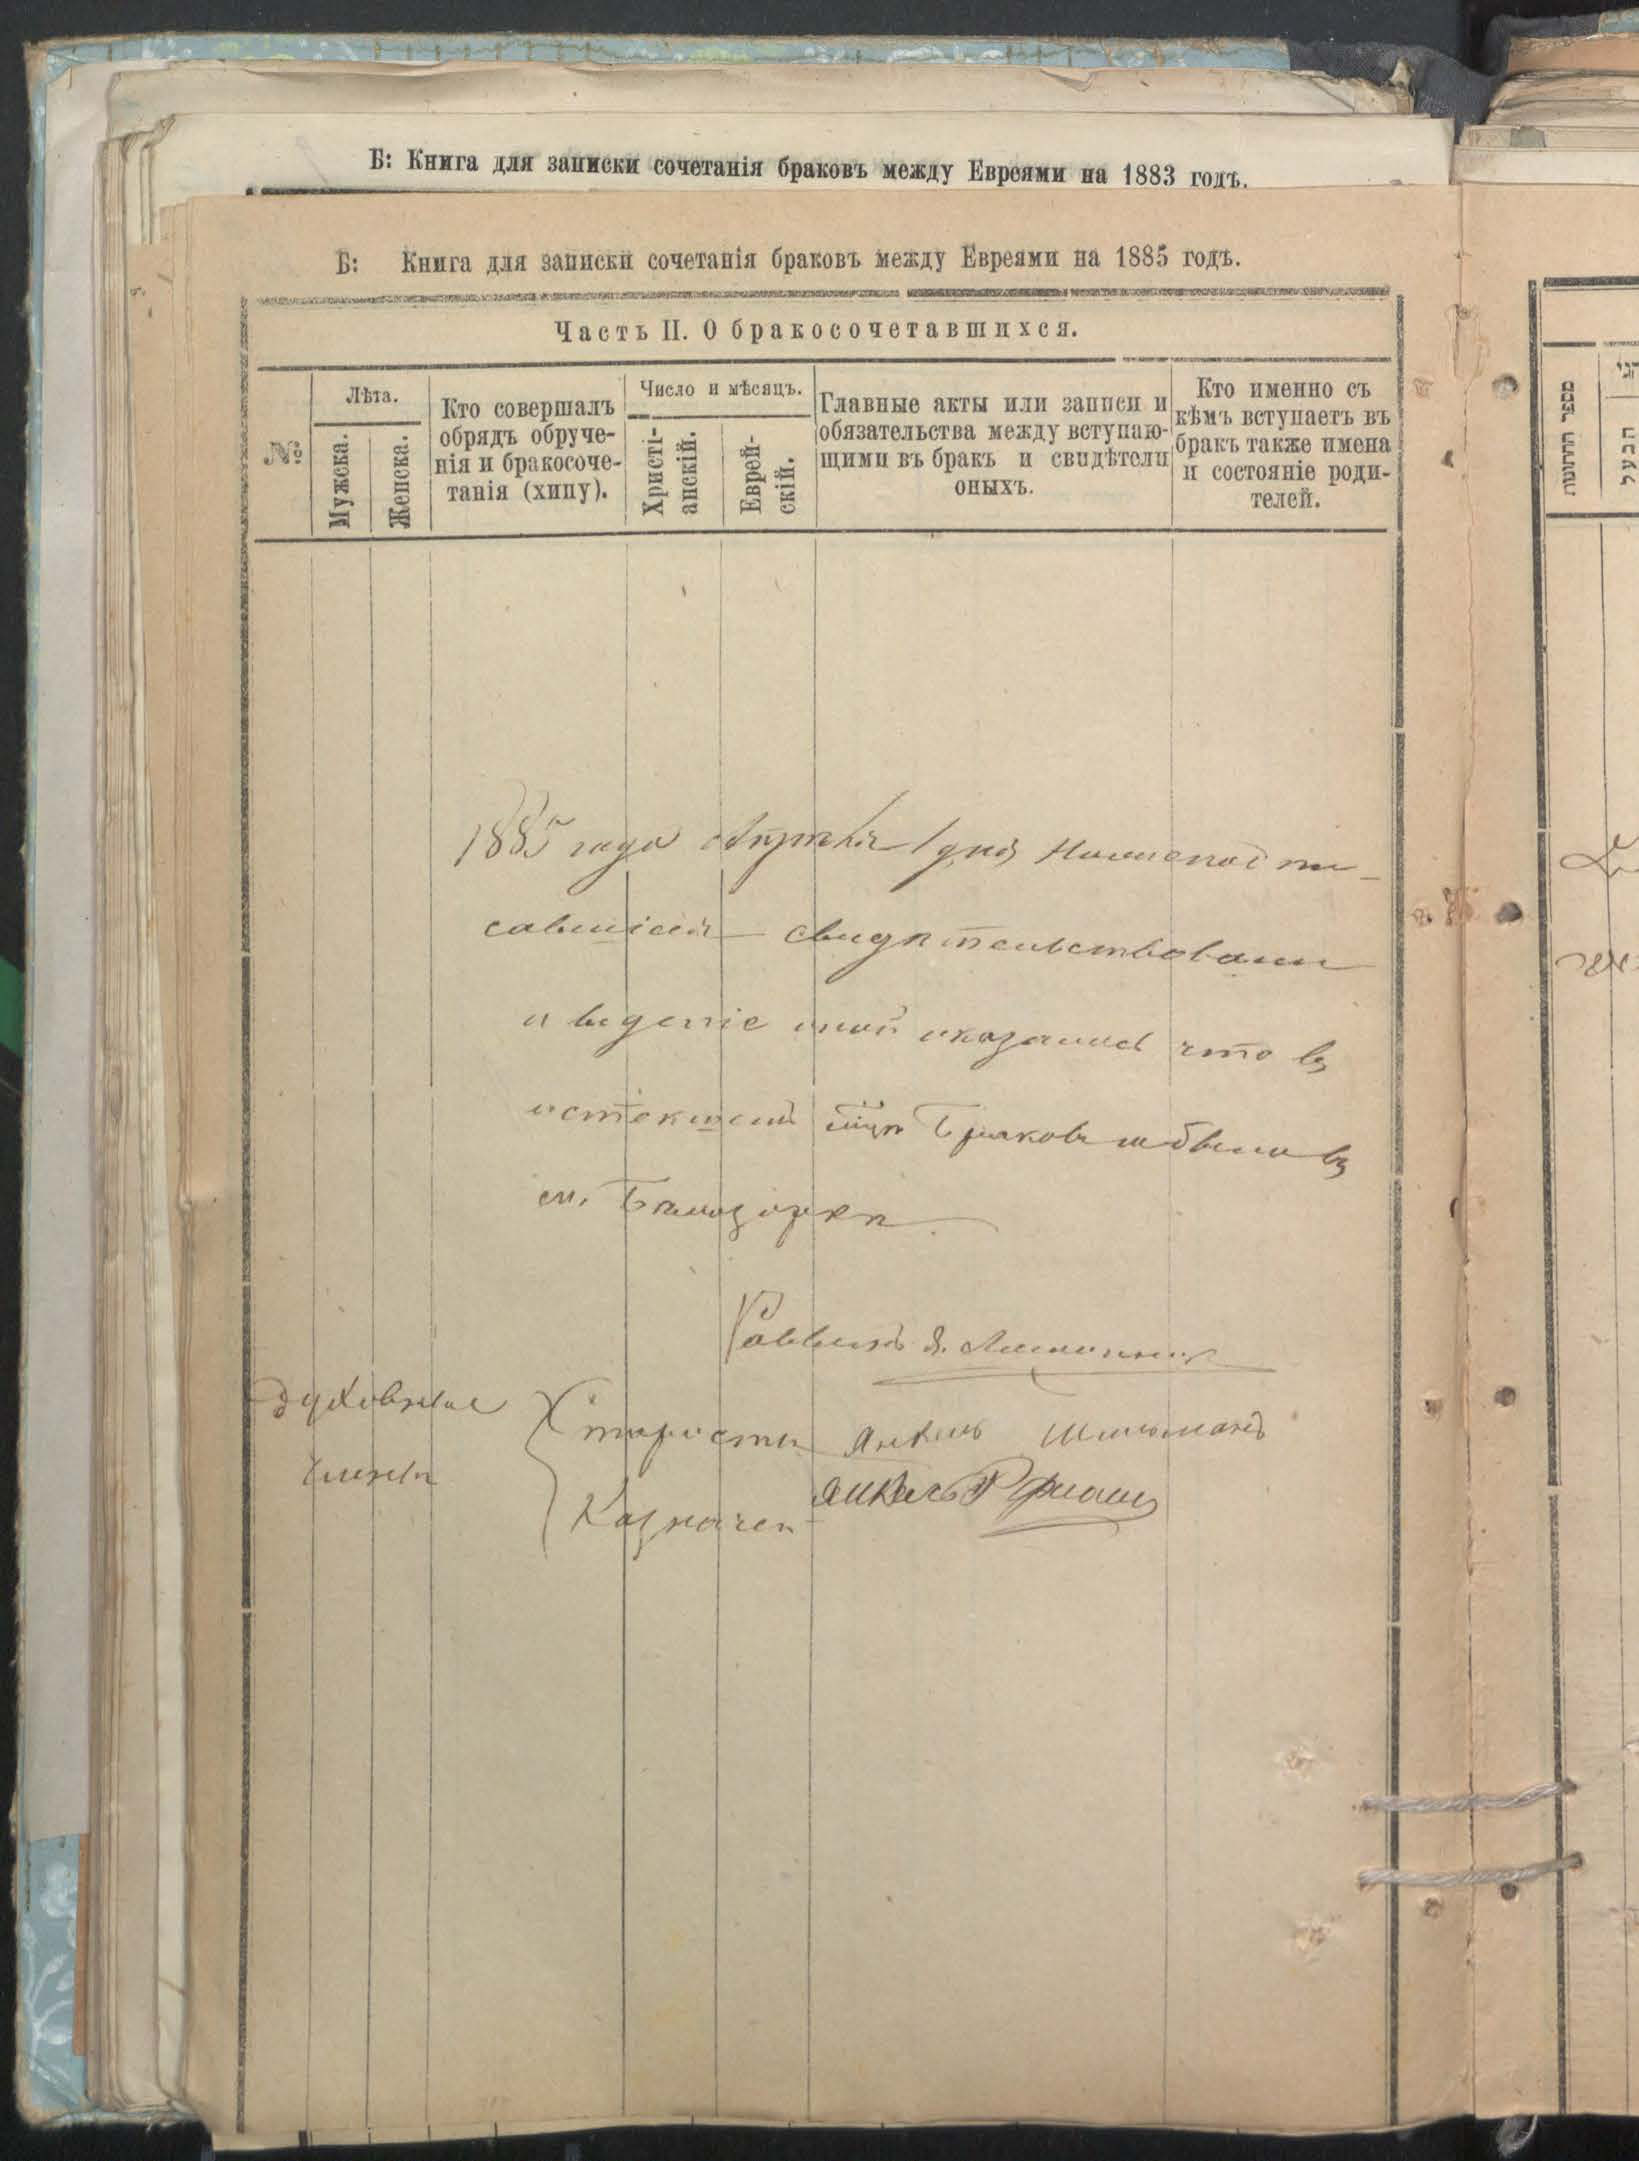 Б: Книга для записки сочетанія браковъ между Евреями на 1883 годъ.
Б: Книга для записки сочетанія браковъ между Евреями на 1885 годъ.
Часть II. О бракосочетавшихся.
№
Лѣта.
Мужска.
Женска.
Кто совершалъ
обрядъ обруче-
нія и бракосоче-
танія (хипу).
Число и мѣсяцъ.
Христі-
анскій.
Еврей-
скій.
Главные акты или записи и
обязательства между вступаю-
щими въ бракъ и свидѣтели
оныхъ.
Кто именно съ
кѣмъ вступаетъ въ
бракъ также имена
и состояніе роди-
телей.
1885 года 1 дня
свидѣтельствовали
и веденіе оказалось что въ
истекшемъ Браковъ небыло въ
м.
Раввинъ Я.
Духовные
члены
Староста Янкель Шильманъ
Казначей Янкель
מספר החתונות